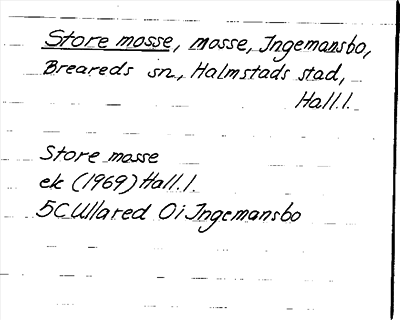 Store mosse, mosse, Ingemansbo,
Breareds sn., Halmstads stad,
Hall.l.
Store mosse
ek (1969) Hall.l.
5C Ullared Oi Ingemansbo